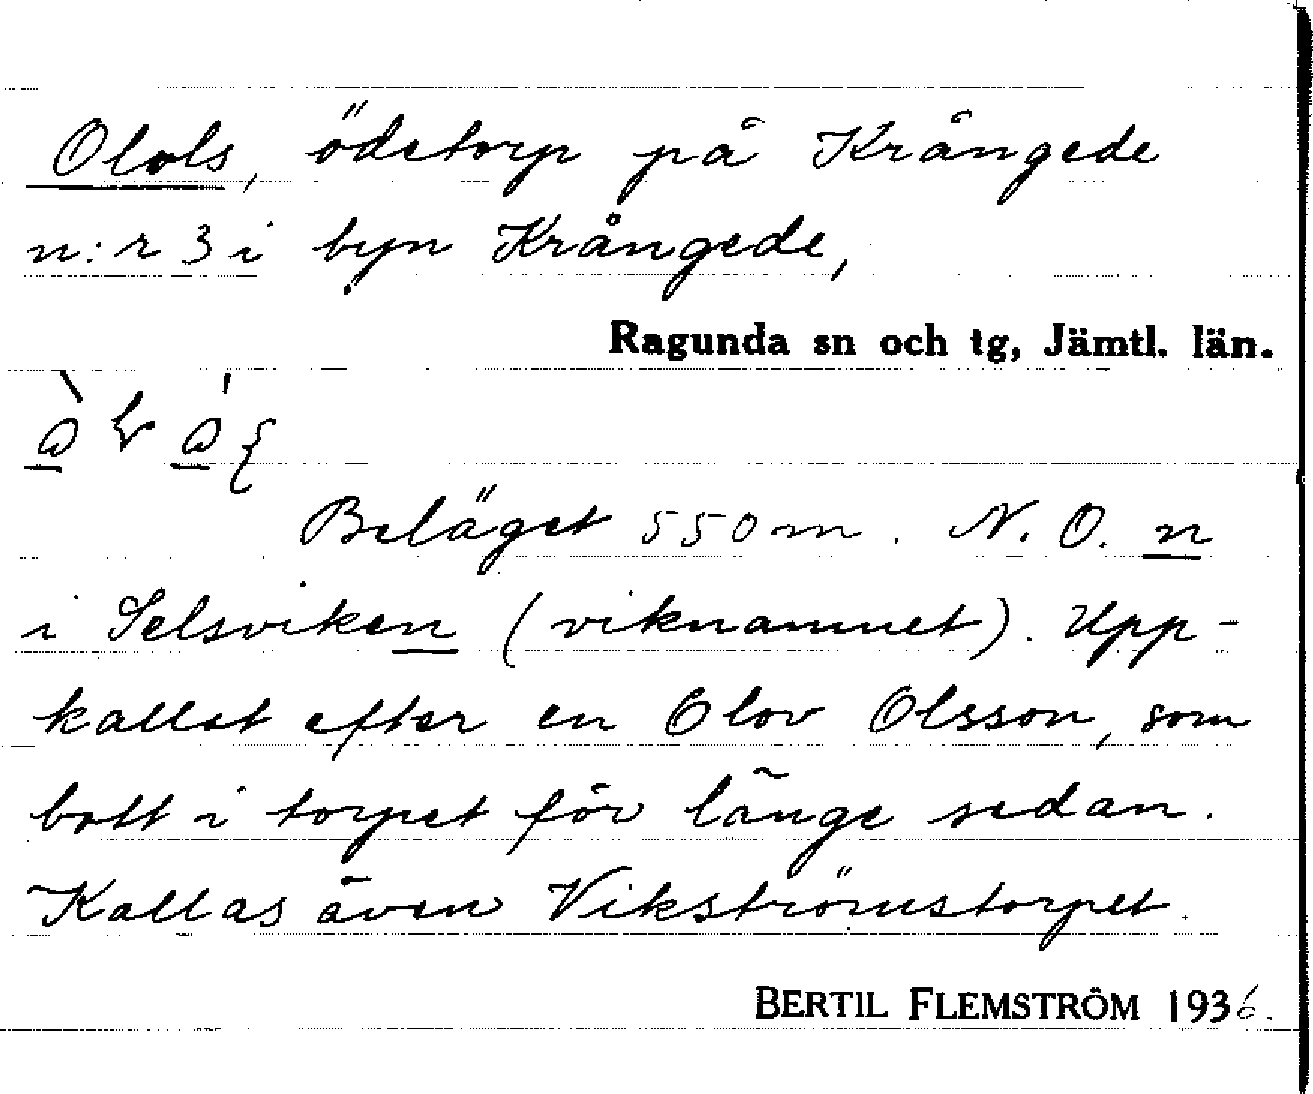 Olols, ödetorp på Krångede
n:r 3 i byn Krångede,
Ragunda sn och tg, Jämtl. län.
Beläget 550 m. N. O. n
i Selsviken (viknamnet). Upp-
kallat efter en Olov Olsson, som
bott i torpet för länge sedan.
Kallas även Vikströmstorpet.
BERTIL FLEMSTRÖM 1936.